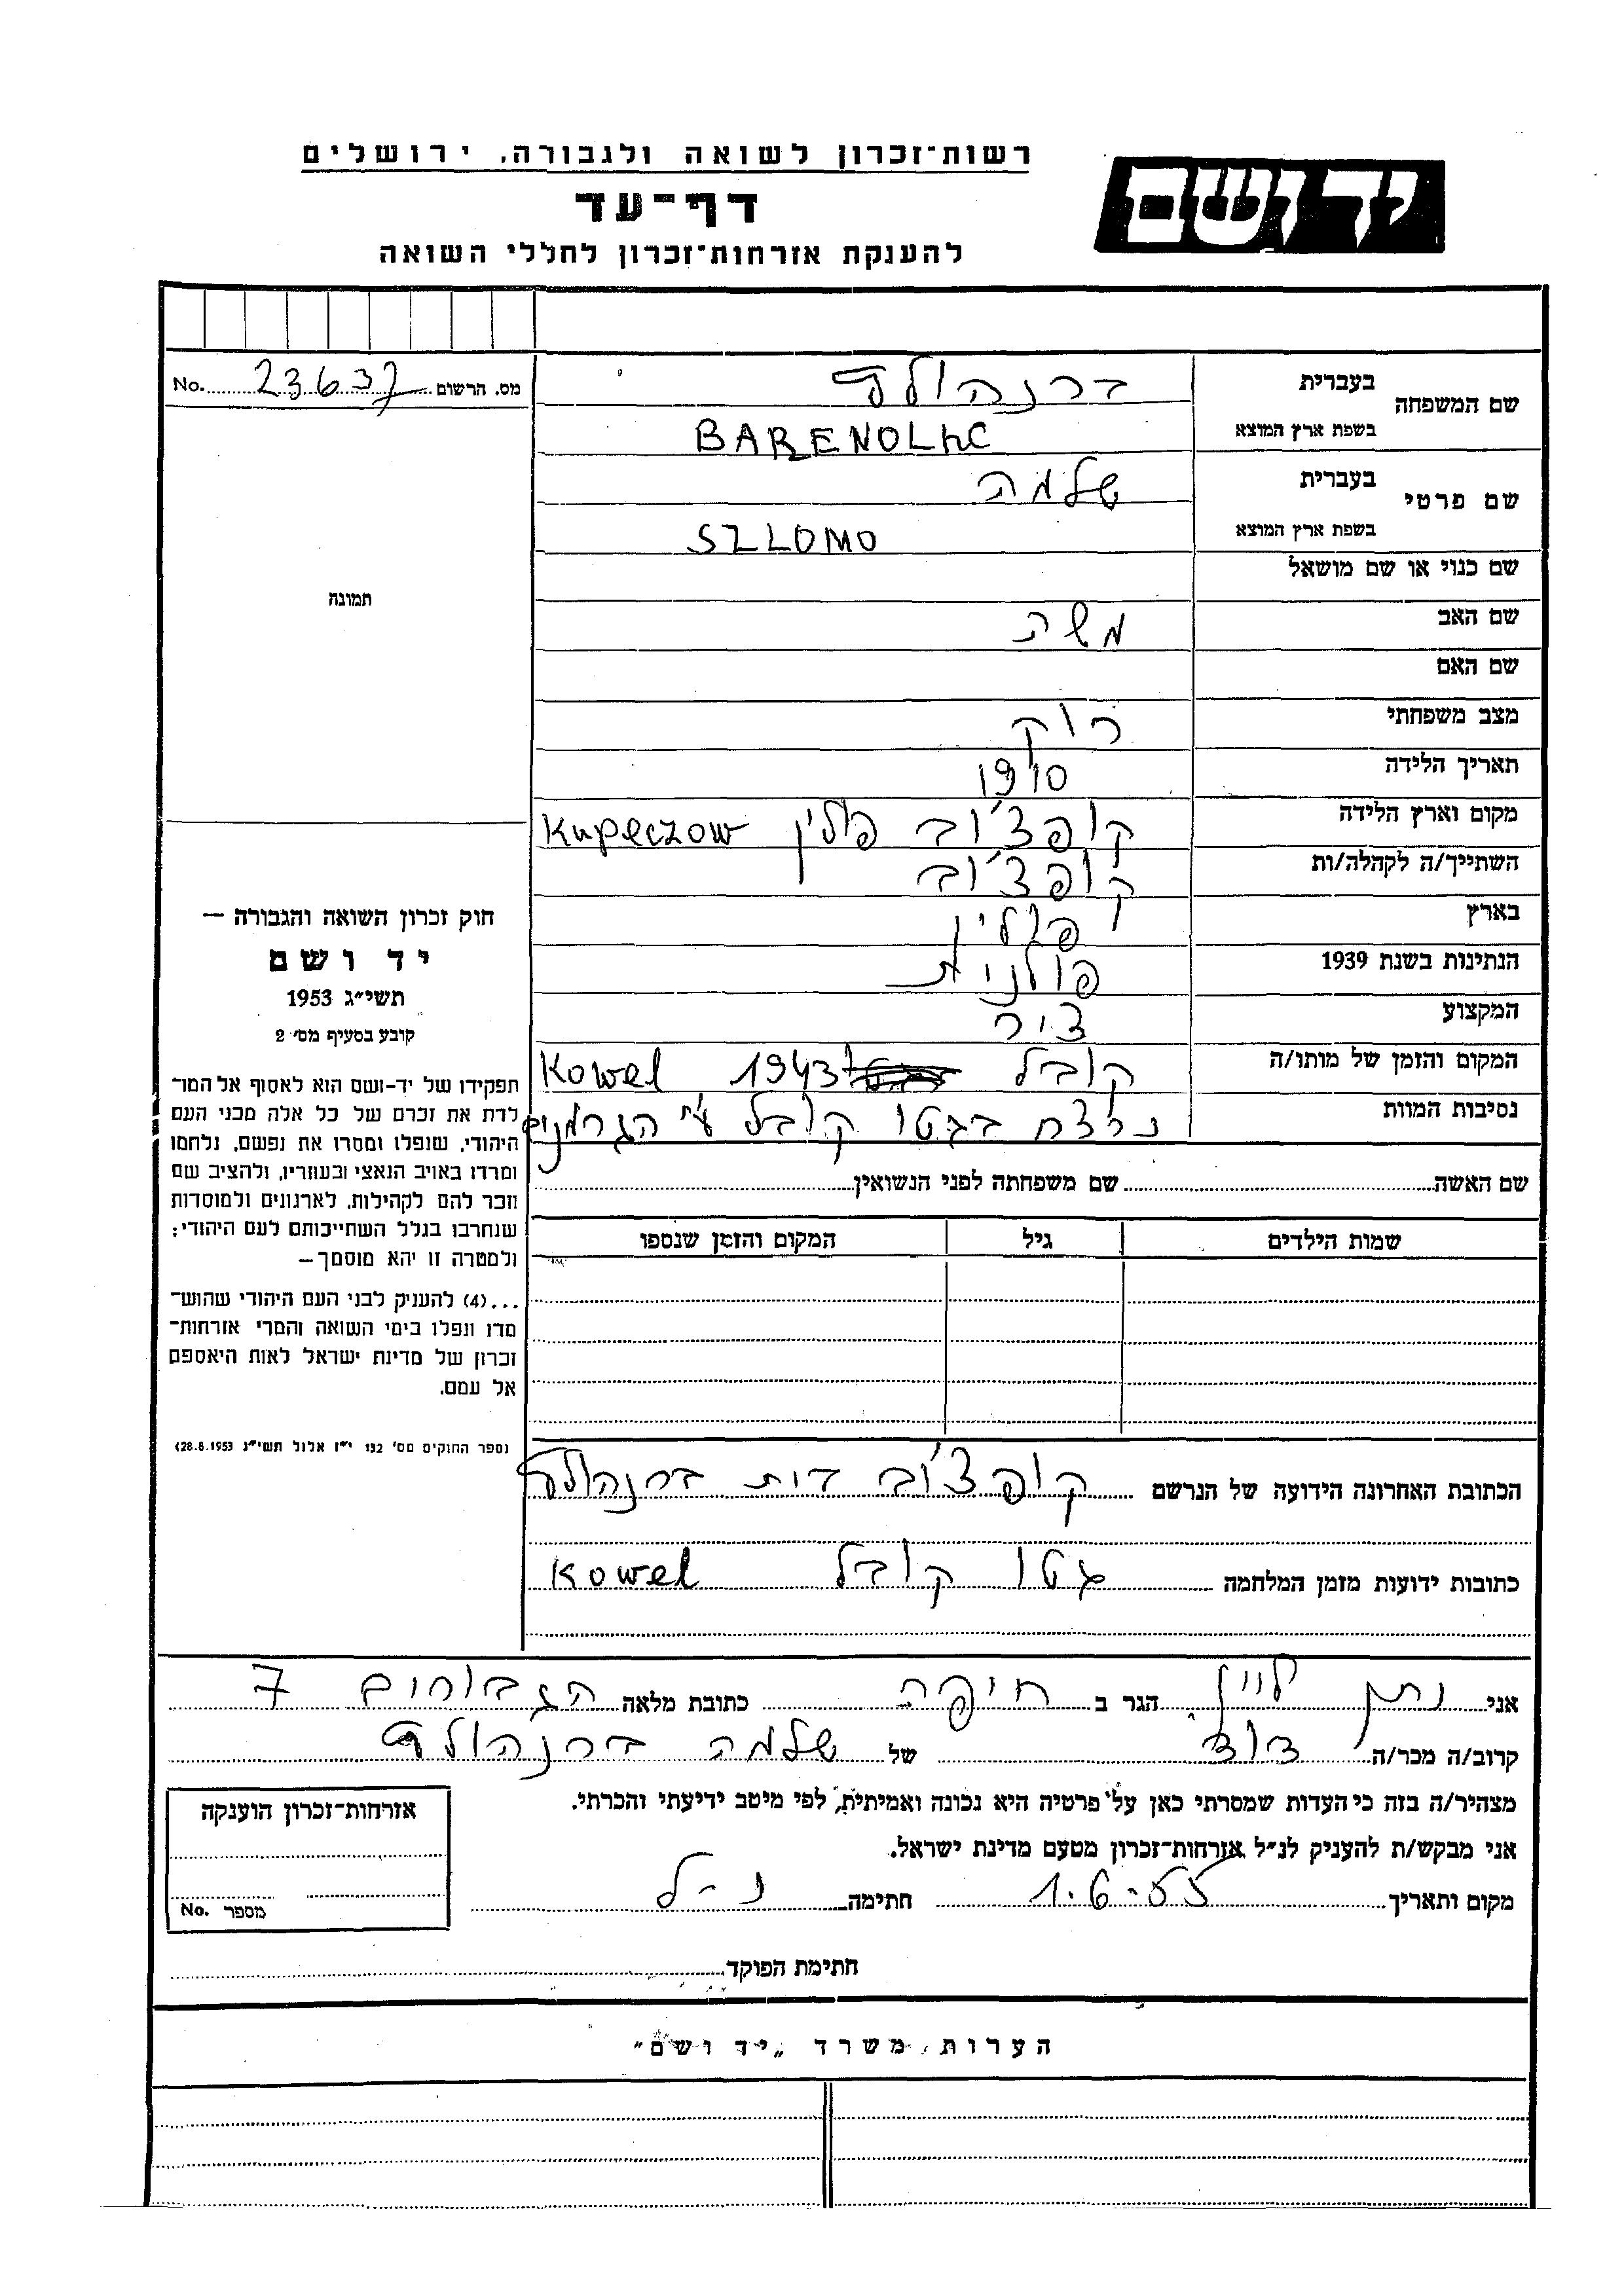 רשות־זכרון לשואה ולגבורה, ירושלים
יד ושם
דף־עד
להענקת אזרחות־זכרון לחללי השואה
שם המשפחה בעברית ברנהולץ
בשפת ארץ המוצא BARENOLhC
מס. הרשום 23637 No.
שם פרטי בעברית שלמה
בשפת ארץ המוצא SZLOMO
שם כנוי או שם מושאל
תמונה
שם האב משה
שם האם
מצב משפחתי רוק
תאריך הלידה 1910
מקום וארץ הלידה קופצ'וב פולין Kupeczow
השתייך/ה לקהלה/ות קופצ'וב
בארץ פולין
הנתינות בשנת 1939 פולנית
המקצוע
המקום והזמן של מותו/ה קובל 1943 Kowel
נסיבות המוות נרצח בגטו קובל ע"י הגרמנים
חוק זכרון השואה והגבורה —
יד ושם
תשי״ג 1953
קובע בסעיף מס׳ 2
תפקידו של יד-ושם הוא לאסוף אל המו־
לדת את זכרם של כל אלה מבני העם
היהודי, שנפלו ומסרו את נפשם, נלחמו
ומרדו באויב הנאצי ובעוזריו, ולהציב שם
וזכר להם לקהילות, לארגונים ולמוסדות
שנחרבו בגלל השתייכותם לעם היהודי;
ולמטרה זו יהא מוסמך—
...(4) להעניק לבני העם היהודי שהוש־
מדו ונפלו בימי השואה והמרי אזרחות־
זכרון של מדינת ישראל לאות היאספם
אל עמם.
(ספר החוקים מס׳ 132 י״ז אלול תשי״ג 28.8.1953)
שם האשה שם משפחתה לפני הנשואין
שמות הילדים גיל המקום והזמן שנספו
הכתובת האחרונה הידועה של הנרשם קופצ'וב בית ברנהולץ
כתובות ידועות מזמן המלחמה גטו קובל Kowel
אני נתן לוין הגר ב חיפה כתובת מלאה הגבורים 7
קרוב/ה מכר/ה דוד של שלמה ברנהולץ
מצהיר/ה בזה כי העדות שמסרתי כאן על פרטיה היא נכונה ואמיתית, לפי מיטב ידיעתי והכרתי.
אני מבקש/ת להעניק לנ״ל אזרחות־זכרון מטעם מדינת ישראל.
מקום ותאריך 1.6-55 חתימה נ-ל
חתימת הפוקד
אזרחות־זכרון הוענקה
מספר No.
הערות משרד „יד ושם״